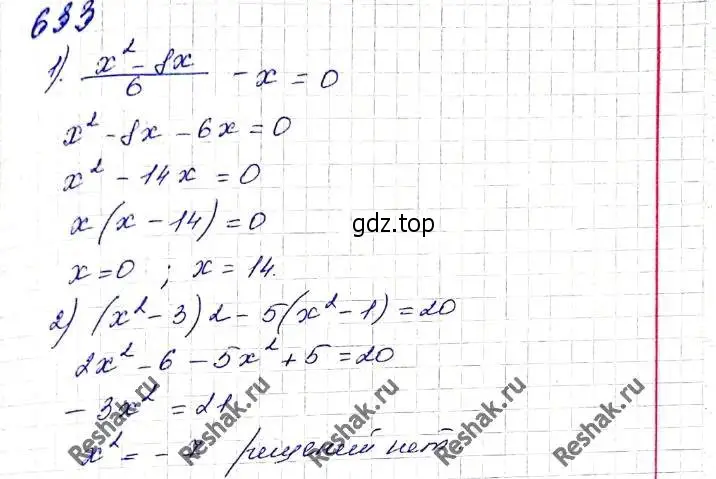 633
1). x² - 8x / 6 - x = 0
x² - 8x - 6x = 0
x² - 14x = 0
x(x - 14) = 0
gdz.top
x = 0 ; x = 14.
2) (x² - 3) 2 - 5(x² - 1) = 20
2x² - 6 - 5x² + 5 = 20
- 3x² = 21
x² = - 7 решений нет
Reshak.ru Reshak.ru Reshak.ru Reshak.ru